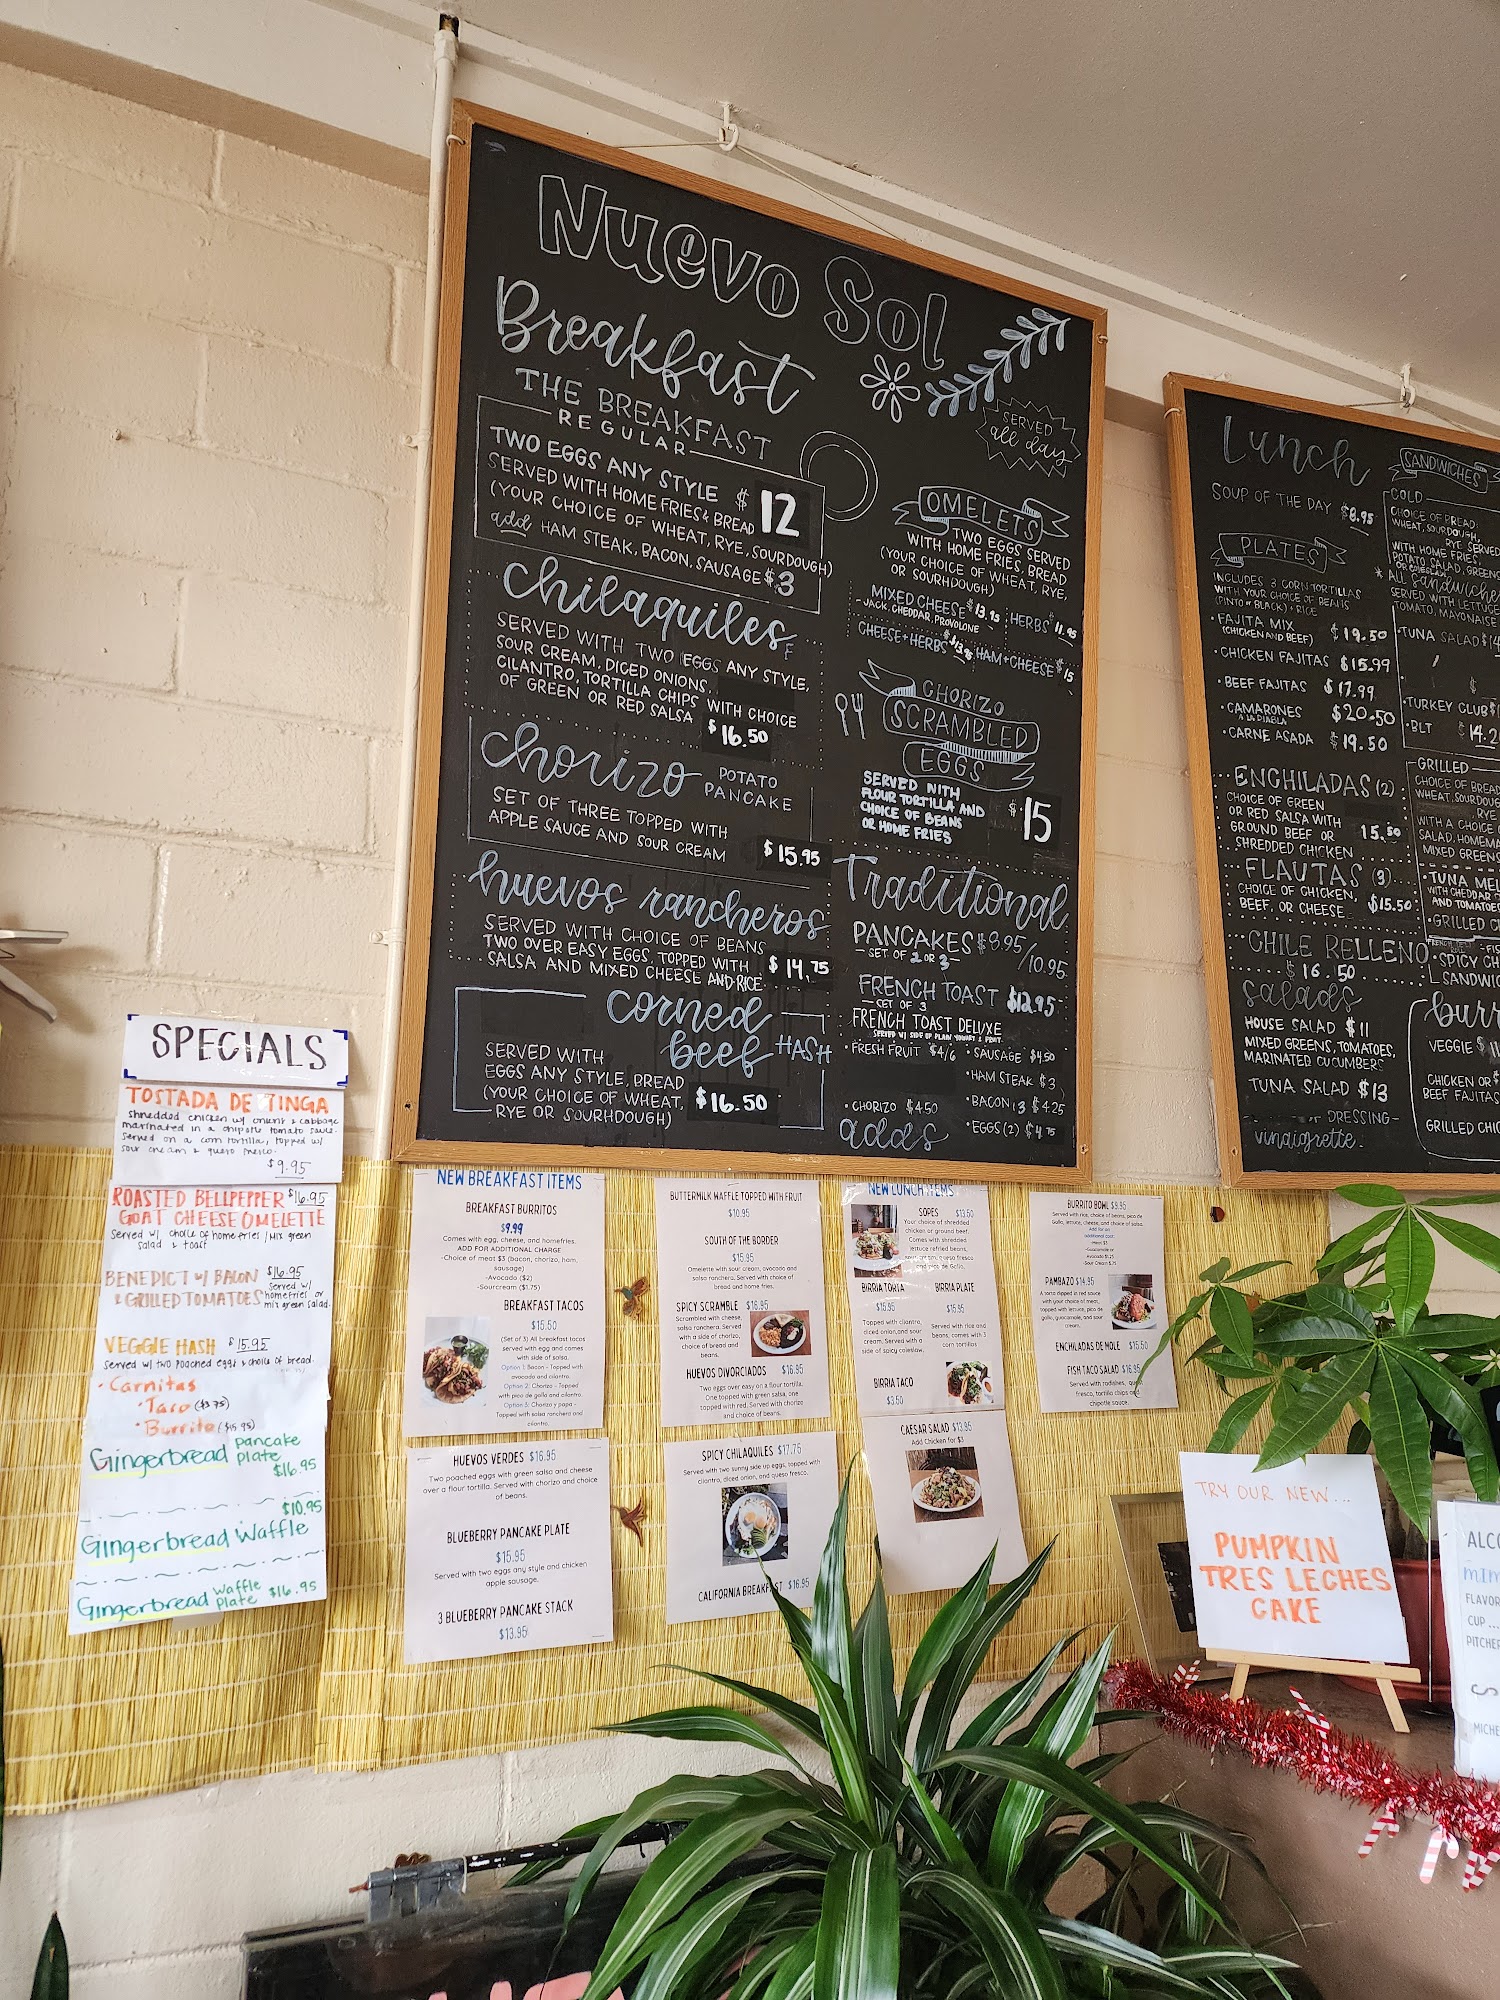 Nuevo Sol
Breakfast
SERVED
all day
THE BREAKFAST
REGULAR
TWO EGGS ANY STYLE $12
SERVED WITH HOME FRIES & BREAD
(YOUR CHOICE OF WHEAT, RYE, SOURDOUGH)
add HAM STEAK, BACON, SAUSAGE $3
chilaquiles
SERVED WITH TWO EGGS ANY STYLE,
SOUR CREAM, DICED ONIONS,
CILANTRO, TORTILLA CHIPS WITH CHOICE
OF GREEN OR RED SALSA $16.50
chorizo POTATO
PANCAKE
SET OF THREE TOPPED WITH
APPLE SAUCE AND SOUR CREAM $15.95
huevos rancheros
SERVED WITH CHOICE OF BEANS
TWO OVER EASY EGGS, TOPPED WITH
SALSA AND MIXED CHEESE AND RICE. $14.75
corned
beef HASH
SERVED WITH
EGGS ANY STYLE, BREAD
(YOUR CHOICE OF WHEAT,
RYE OR SOURHDOUGH) $16.50
OMELETS
TWO EGGS SERVED
WITH HOME FRIES, BREAD
(YOUR CHOICE OF WHEAT, RYE,
OR SOURHDOUGH)
MIXED CHEESE $13.95
- JACK, CHEDDAR, PROVOLONE
HERBS $11.95
CHEESE+HERBS $13.95
HAM+CHEESE $15
CHORIZO
SCRAMBLED
EGGS
SERVED WITH
FLOUR TORTILLA AND
CHOICE OF BEANS
OR HOME FRIES
$15
Traditional
PANCAKES $8.95/10.95
- SET OF 2 OR 3 -
FRENCH TOAST $12.95
SET OF 3
FRENCH TOAST DELUXE
SERVED W/ SIDE OF PLAIN YOGURT & FRUIT
• FRESH FRUIT $4/6
• SAUSAGE $4.50
• HAM STEAK $3
• CHORIZO $4.50
• BACON 3 $4.25
• EGGS (2) $4.75
adds
Lunch
SOUP OF THE DAY $8.95
PLATES
INCLUDES 3 CORN TORTILLAS
WITH YOUR CHOICE OF BEANS
(PINTO OR BLACK) + RICE
• FAJITA MIX $19.50
(CHICKEN AND BEEF)
• CHICKEN FAJITAS $15.99
• BEEF FAJITAS $17.99
• CAMARONES $20.50
A LA DIABLA
• CARNE ASADA $19.50
ENCHILADAS (2)
CHOICE OF GREEN
OR RED SALSA WITH
GROUND BEEF OR
SHREDDED CHICKEN
15.50
FLAUTAS (3)
CHOICE OF CHICKEN,
BEEF, OR CHEESE $15.50
CHILE RELLENO
$16.50
salads
HOUSE SALAD $11
MIXED GREENS, TOMATOES,
MARINATED CUCUMBERS
TUNA SALAD $13
DRESSING-
vinaigrette.
SANDWICHES
COLD
CHOICE OF BREAD:
WHEAT, SOURDOUGH,
RYE SERVED
WITH HOME FRIES,
POTATO SALAD,
SERVED WITH LETTUCE
TOMATO, MAYONAISE
• TUNA SALAD
• TURKEY CLUB
• BLT
GRILLED
CHOICE OF BREAD
WITH A CHOICE
MIXED GREENS
WITH CHEDDAR
AND TOMATOES
VEGGIE
CHICKEN OR
BEEF FAJITAS
SPECIALS
TOSTADA DE TINGA
shredded chicken w/ onions & cabbage
marinated in a chipotle tomato sauce.
served on a corn tortilla, topped w/
sour cream & queso fresco.
$9.95
ROASTED BELLPEPPER $16.95
GOAT CHEESE OMELETTE
served w/ choice of home fries / mix green
salad & toast
BENEDICT W/ BACON $16.95
& GRILLED TOMATOES served w/
homefries or
mix green salad.
VEGGIE HASH $15.95
served w/ two poached eggs & choice of bread.
• Carnitas
• Taco ($3.75)
• Burrito ($15.95)
Gingerbread pancake
plate
$16.95
$10.95
Gingerbread Waffle
Gingerbread waffle
plate $16.95
NEW BREAKFAST ITEMS
BREAKFAST BURRITOS
$9.99
Comes with egg, cheese, and homefries.
ADD FOR ADDITIONAL CHARGE
-Choice of meat $3 (bacon, chorizo, ham,
sausage)
-Avocado ($2)
-Sourcream ($1.75)
BREAKFAST TACOS
$15.50
(Set of 3) All breakfast tacos
served with egg and comes
with side of salsa.
Option 1: Bacon - Topped with
avocado and cilantro.
Option 2: Chorizo - Topped
with pico de gallo and cilantro.
Option 3: Chorizo y papa -
Topped with salsa ranchera and
cilantro.
HUEVOS VERDES $16.95
Two poached eggs with green salsa and cheese
over a flour tortilla. Served with chorizo and choice
of beans.
BLUEBERRY PANCAKE PLATE
$15.95
Served with two eggs any style and chicken
apple sausage.
3 BLUEBERRY PANCAKE STACK
$13.95
BUTTERMILK WAFFLE TOPPED WITH FRUIT
$10.95
SOUTH OF THE BORDER
$15.95
Omelette with sour cream, avocado and
salsa ranchera. Served with choice of
bread and home fries.
SPICY SCRAMBLE $16.95
Scrambled with cheese,
salsa ranchera. Served
with a side of chorizo,
choice of bread and
beans.
HUEVOS DIVORCIADOS $16.95
Two eggs over easy on a flour tortilla.
One topped with green salsa, one
topped with red. Served with chorizo
and choice of beans.
SPICY CHILAQUILES $17.75
Served with two sunny side up eggs, topped with
cilantro, diced onion, and queso fresco.
CALIFORNIA BREAKFAST $16.95
NEW LUNCH ITEMS
SOPES $13.50
Your choice of shredded
chicken or ground beef.
Comes with shredded
lettuce refried beans,
sour cream, queso fresco
and pico de Gallo.
BIRRIA TORTA
$15.95
Topped with cilantro,
diced onion, and sour
cream. Served with a
side of spicy coleslaw.
BIRRIA PLATE
$15.95
Served with rice and
beans, comes with 3
corn tortillas
BIRRIA TACO
$3.50
CAESAR SALAD $13.95
Add Chicken for $3
BURRITO BOWL $9.95
Served with rice, choice of beans, pico de
Gallo, lettuce, choice of cheese, and choice of salsa.
Add for an
additional cost:
-Meat $3
-Guacamole or
Avocado $1.25
-Sour Cream $.75
PAMBAZO $14.95
A torta dipped in red sauce
with your choice of meat,
topped with lettuce, pico de
gallo, guacamole, and sour
cream.
ENCHILADAS DE MOLE $15.50
FISH TACO SALAD $16.95
Served with radishes,
fresco, tortilla chips and
chipotle sauce.
TRY OUR NEW...
PUMPKIN
TRES LECHES
CAKE
CUP